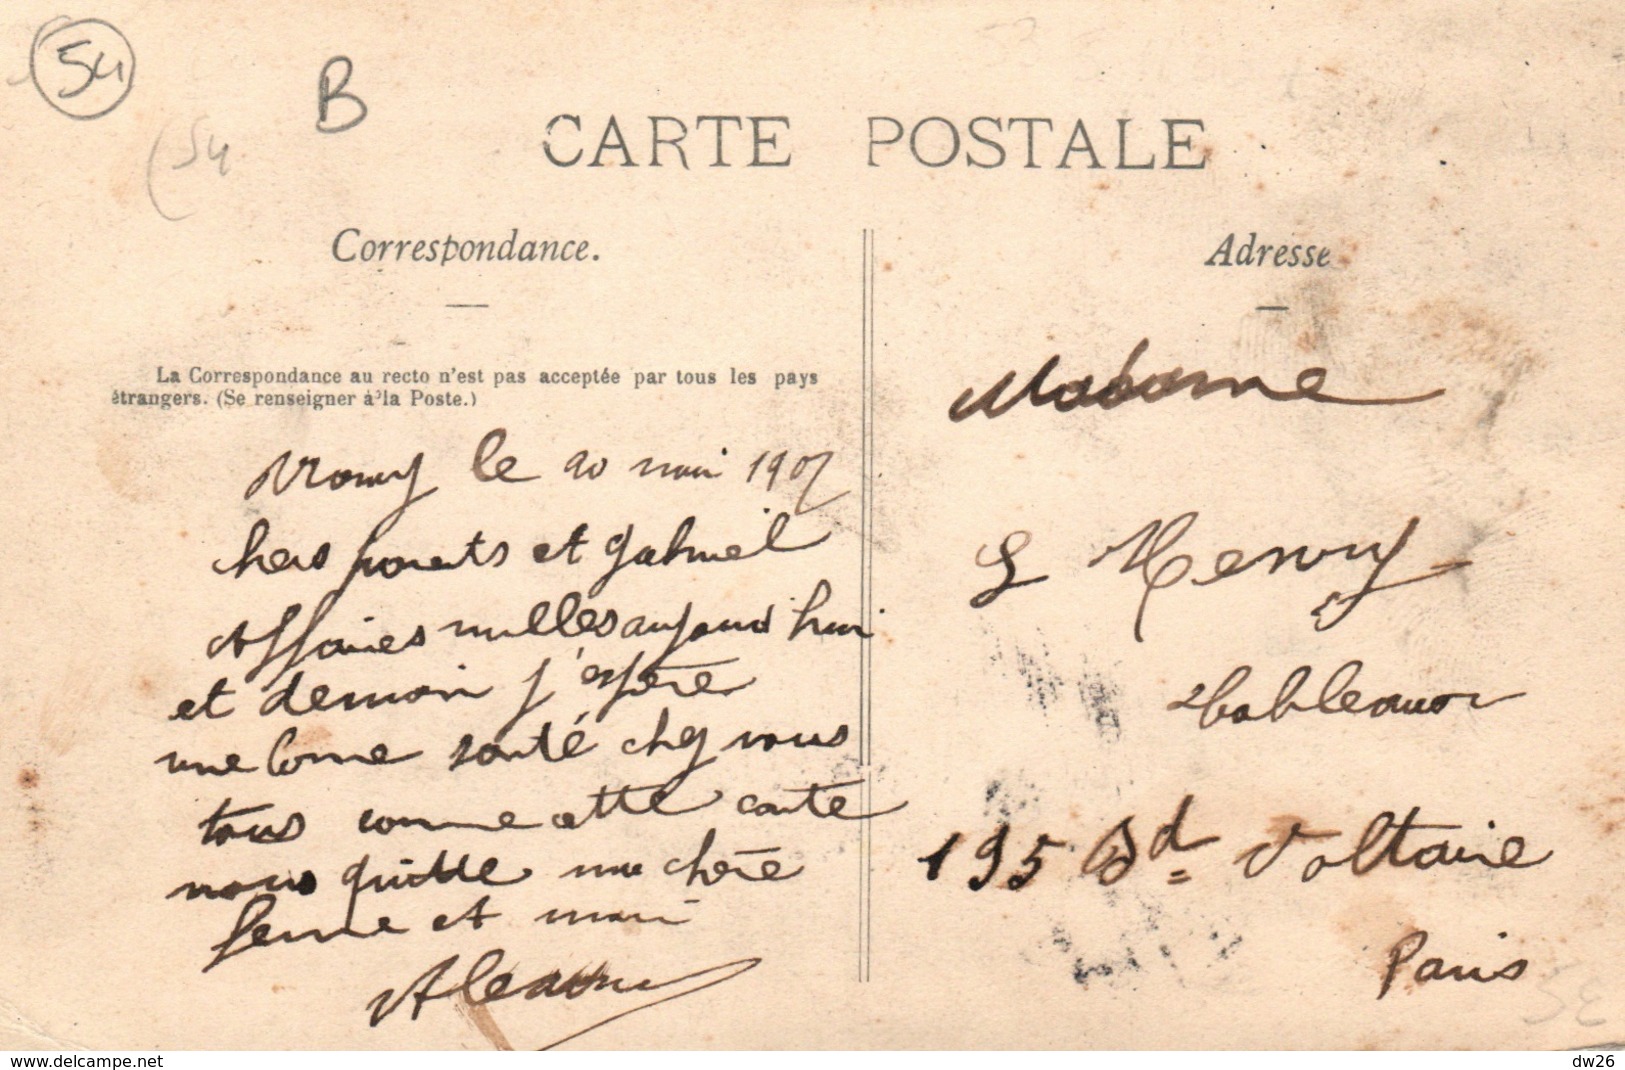 54
B
54
CARTE POSTALE
Correspondance.
Adresse
La Correspondance au recto n'est pas acceptée par tous les pays
étrangers. (Se renseigner à la Poste.)
le 20 mai 1907
hers parents et gabriel
Affaires nulles aujourd hui
et demain j'espère
une bonne santé chez vous
tous comme cette carte
nous quitte ma chère
femme et moi
Madame
Henry
195 Bd Voltaire
Paris
delcampe.net
dw26